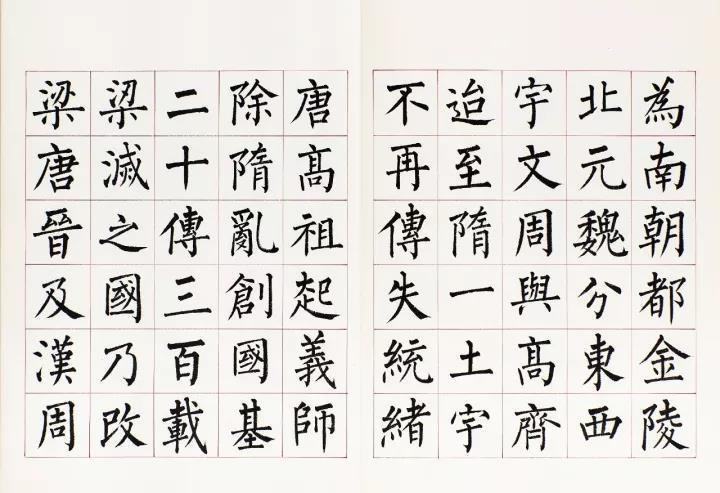 為南朝都金陵
北元魏分東西
宇文周與高齊
迨至隋一土宇
不再傳失統緒
唐高祖起義師
除隋亂創國基
二十傳三百載
梁滅之國乃改
梁唐晉及漢周